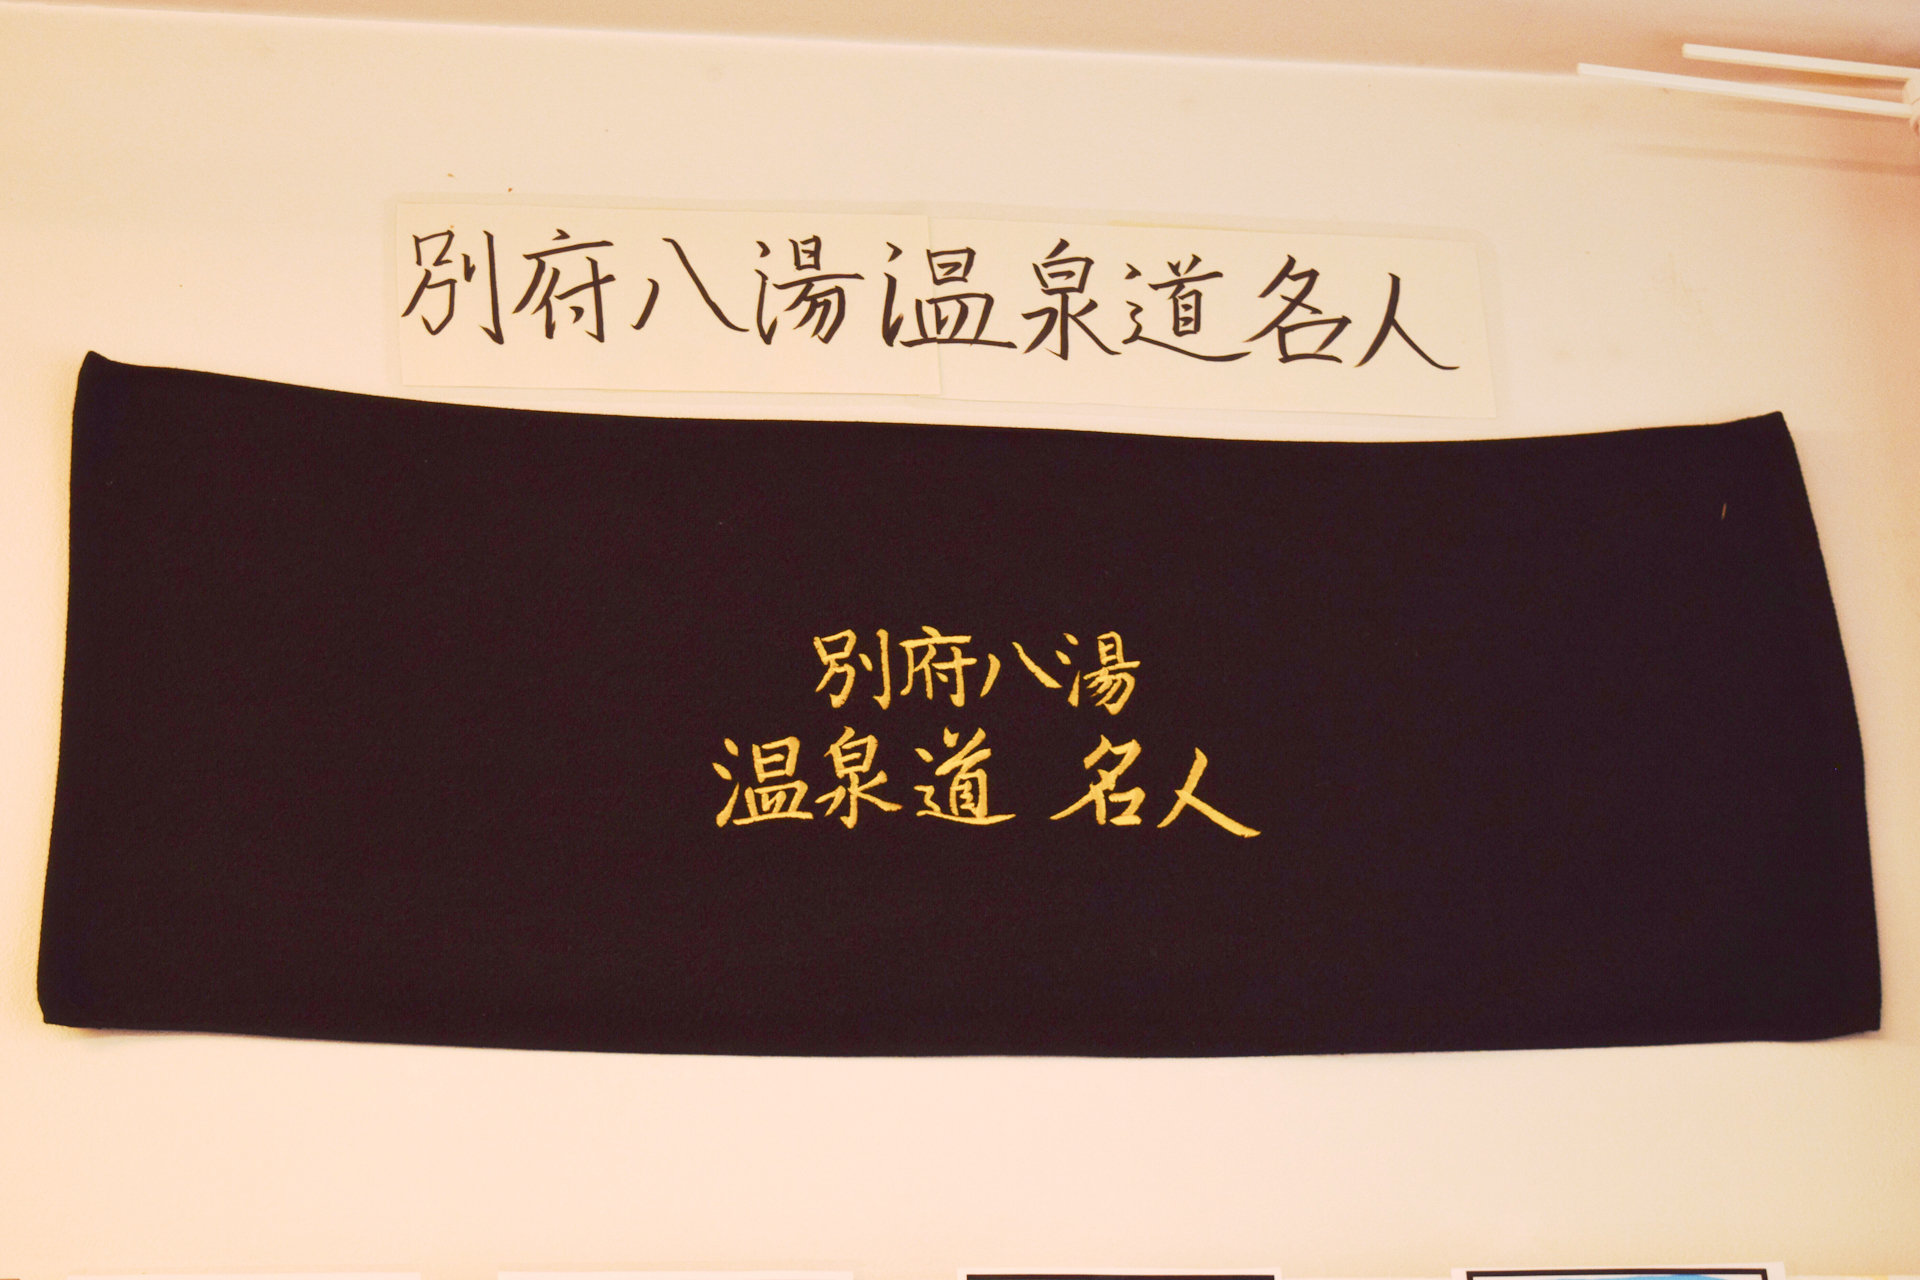 別府八湯温泉道名人
別府八湯
温泉道 名人